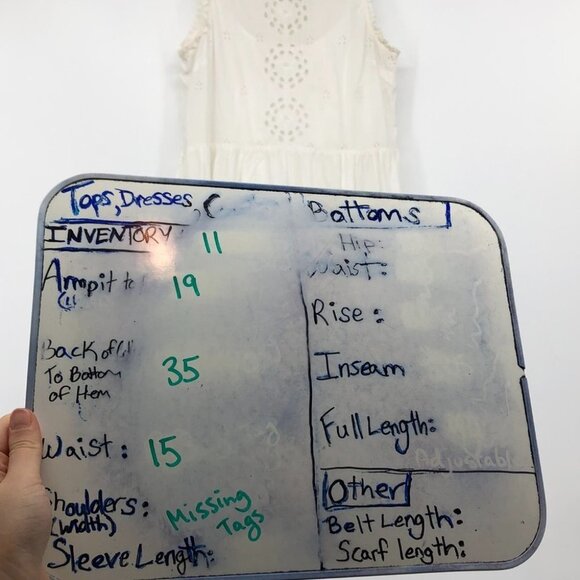 Tops, Dresses,
INVENTORY 11
Armpit to 19
Back of
To Bottom 35
of Hem
Waist: 15
Shoulders: Missing
(width) Tags
Sleeve Length:
Bottoms
Hip:
Waist:
Rise:
Inseam
Full Length:
Adjustabl
Other
Belt Length:
Scarf length: